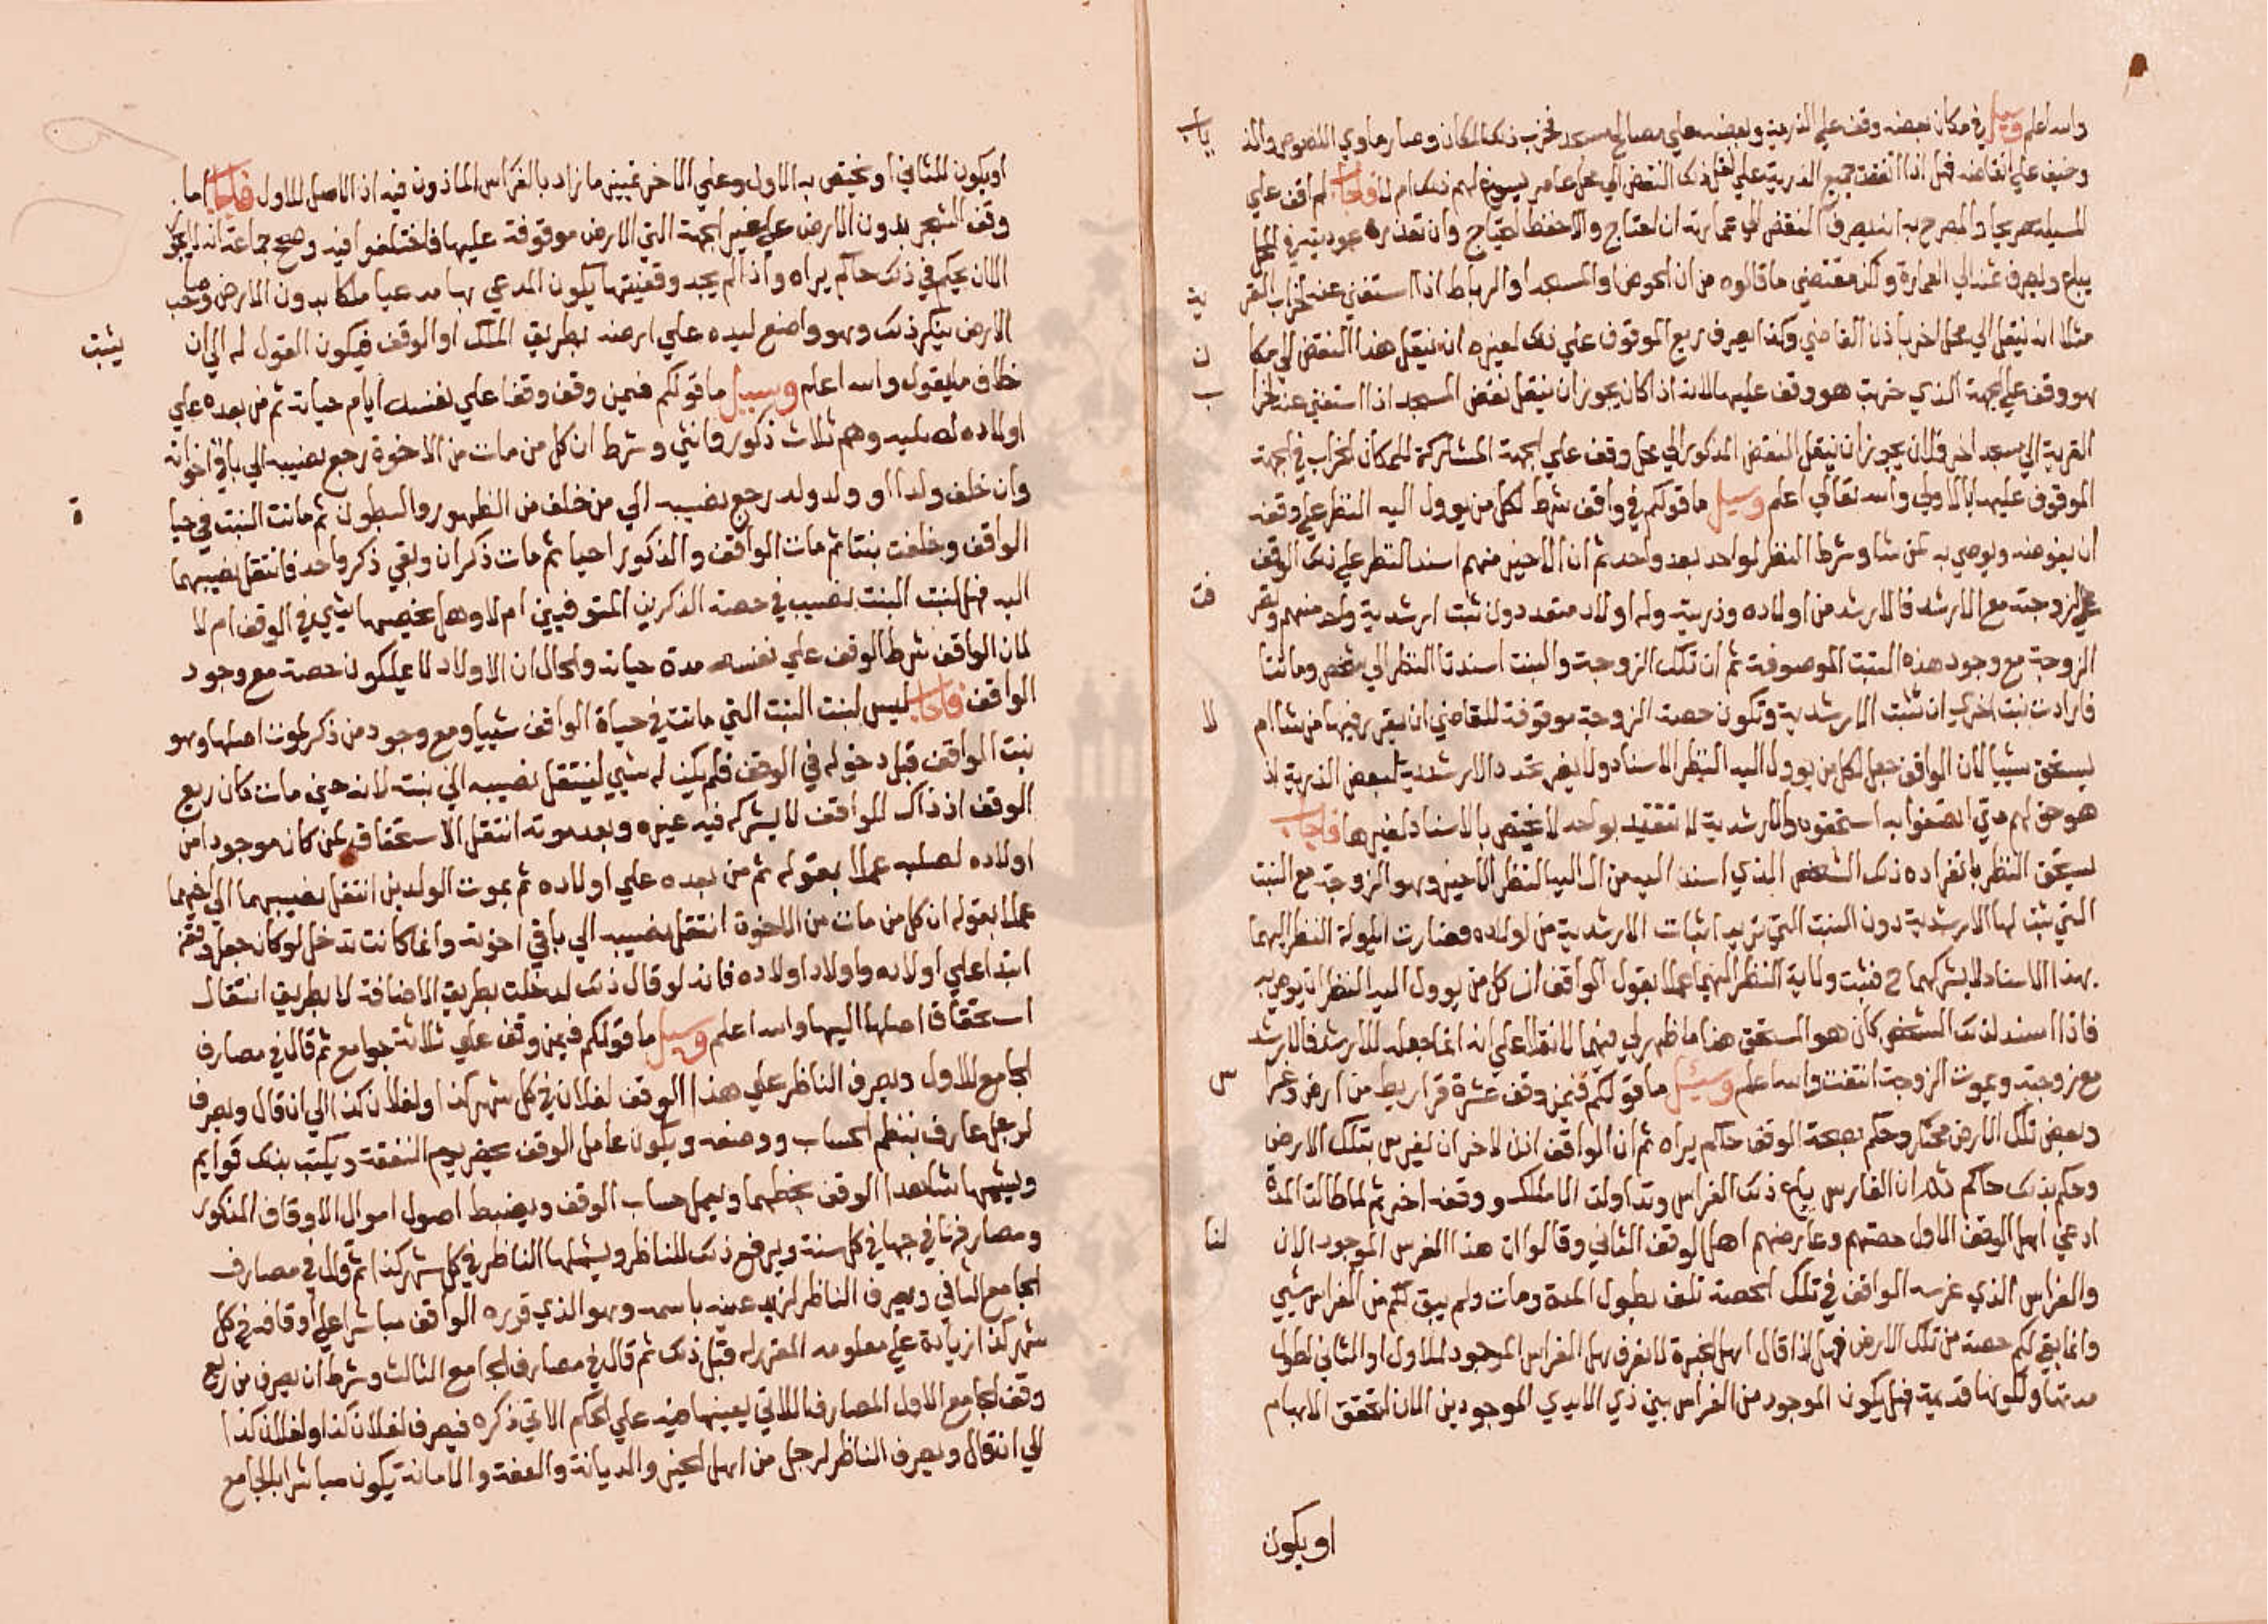 والله اعلم وسيل في مكان بعضه وقف علي الذرية وبعضه علي مصالح مسجد فخرب ذلك المكان وصار ماوي اللصوص والذ ياب
وخيف علي انقاضه فهل اذا اتفقت جميع الذرية علي نقل ذلك النقض الي محل عامر يسوغ لهم ذلك ام لا فاجاب لم اقف علي
المسيلة صريحا والمصرح به انه يصرف النقض الي عمارته ان احتاج والا حفظ للاحتياج وان تعذر عوده بعينه في المحل
يباع ويصرف ثمنه الي العمارة ولكن مقتضي ما قالوه من ان الحوض او المسجد او الرباط اذا استغني عنه لخراب القر ية
مثلا انه ينقل الي محل اخر باذن القاضي وكذا يصرف ريع الموقوف علي ذلك لغيره انه ينقل هذا النقض الي مكا ن
هو وقف علي الجهة الذي خربت هو وقف عليها لانه اذا كان يجوز ان ينقل نقض المسجد اذا استغني عنه لخرا ب
القرية الي مسجد اخر فلان يجوز ان ينقل النقض المذكور الي محل وقف علي الجهة المشاركة للمكان الخراب في الجهة
الموقوف عليها بالاولي والله تعالي اعلم وسيل ما قولكم في واقف شرط لكل من يوول اليه النظر علي وقفه
ان يفوضه ويوصي به لمن شا وشرط النظر لواحد بعد واحد ثم ان الاخير منهم اسند النظر علي ذلك الوقف
علي لزوجته مع الارشد فالارشد من اولاده وذريته وله اولاد متعددون ثبت ارشدية واحد منهم وتصر فت
الزوجة مع وجود هذه البنت الموصوفة ثم ان تلك الزوجة والبنت اسندتا النظر الي شخص وماتتا
فارادت بنت اخري ان تثبت الارشدية وتكون حصة الزوجة موقوفة للقاضي ان يقرر فيها من شا ام لا
يستحق شييا لان الواقف جعل لكل من يوول اليه النظر الاسناد ولا يضر تجدد الارشدية لبعض الذرية اذ
هو حق لهم متي اتصفوا به استحقوه والارشدية لا تتقيد بواحد لا يختص بالاسناد لغيرها فاجاب
يستحق النظر بانفراده ذلك الشخص الذي اسند اليه من ال اليه النظر الاخير وهو الزوجة مع البنت
التي ثبت لها الارشدية دون البنت التي تريد اثبات الارشدية من اولاده فصارت ايلولة النظر اليهما
بهذا الاسناد لا يشركهما ح فثبت ولاية النظر اليهما عملا بقول الواقف ان كل من يوول اليه النظر ان يوصي به
فاذا اسند لذلك الشخص كان هو المستحق هذا ما ظهر لي فيهما لا نقلا علي انه انما جعله للارشد فالارشد
مع زوجته وبموت الزوجة انتفت والله اعلم وسيل ما قولكم فيمن وقف عشرة قراريط من ارض وغرا س
وبعض تلك الارض محتكر وحكم بصحة الوقف حاكم يراه ثم ان الواقف اذن لاخر ان يغرس بتلك الارض
وحكم بذلك حاكم ثم ان الغارس باع ذلك الغراس وتداولت الاملاك ووقفه اخر ثم لما طالت المدة
ادعي اهل الوقف الاول حصتهم وعارضهم اهل الوقف الثاني وقالوا ان هذا الغرس الموجود الان لنا
والغراس الذي غرسه الواقف في تلك الحصة تلف بطول المدة ومات ولم يبق لكم من الغراس شيي
وانما بقي لكم حصة من تلك الارض فهل اذا قال اهل الخبرة لا نعرف هل الغراس الموجود للاول او الثاني لطول
مدتها ولكونها قديمة فهل يكون الموجود من الغراس بين ذي الايدي الموجودين الان لتحقق الابهام
او يكون
او يكون للثاني او يختص به الاول وعلي الاخر تمييز ما زاد بالغراس الماذون فيه اذ الاصل للاول فاجاب اما
وقف الشجر بدون الارض علي غير الجهة التي الارض موقوفة عليها فاختلفوا فيه وصحح جماعة انه لا يجوز
الا ان يحكم في ذلك حاكم يراه واذا لم يجد وقفيتها يكون المدعي بها مدعيا ملكا بدون الارض وصاحب
الارض ينكر ذلك وهو واضع ليده علي ارضه بطريق الملك او الوقف فيكون القول له الي ان يثبت
خلاف ما يقول والله اعلم وسيل ما قولكم فيمن وقف وقفا علي نفسه ايام حياته ثم من بعده علي
اولاده لصلبه وهم ثلاث ذكور وانثي وشرط ان كل من مات من الاخوة رجع نصيبه الي باقي اخوانه
وان خلف ولدا او ولد ولد رجع نصيبه الي من خلف من الظهور والبطون ثم ماتت البنت في حيا ة
الواقف وخلفت بنتا ثم مات الواقف والذكور احيا ثم مات ذكران وبقي ذكر واحد فانتقل نصيبهما
اليه فهل لبنت البنت نصيب في حصة الذكرين المتوفيين ام لا وهل يخصها شيي في الوقف ام لا
لان الواقف شرط الوقف علي نفسه مدة حياته والحال ان الاولاد لا يملكون حصة مع وجود
الواقف فاجاب ليس لبنت البنت التي ماتت في حياة الواقف شييا ومع وجود من ذكر لموت اصلها وهو
بنت الواقف قبل دخوله في الوقف فلم يكن له شيي لينتقل نصيبه الي بنته لانه حين مات كان ريع
الوقف اذ ذاك للواقف لا يشركه فيه غيره وبعد موته انتقل الاستحقاق لمن كان موجودا من
اولاده لصلبه عملا بقوله ثم من بعده علي اولاده ثم بموت الولدين انتقل نصيبهما الي اخيهما
عملا بقوله ان كل من مات من الاخوة انتقل نصيبه الي باقي اخوته وانما كانت تدخل لو كان جعل وقفه
ابتدا علي اولاده واولاد اولاده فانه لو قال ذلك لدخلت بطريق الاضافة لا بطريق انتقال
استحقاق اصلها اليها والله اعلم وسيل ما قولكم فيمن وقف علي ثلاثة جوامع ثم قال في مصارف
الجامع الاول ويصرف الناظر علي هذا الوقف لفلان في كل شهر كذا ولفلان كذا الي ان قال ويصرف
لرجل عارف بنظم الحساب ووضعه ويكون عامل الوقف يحضر يوم النفقة ويكتب بذلك قوايم
ويشهما شاهدا الوقف بخطهما ويعمل حساب الوقف ويضبط اصول اموال الاوقاف المذكور
ومصارفها في جهاتي كل سنة ويرفع ذلك للناظر ويشملها الناظر في كل شهر كذا ثم قال في مصارف
الجامع الثاني ويصرف الناظر لزيد عينه باسمه وهو الذي قرره الواقف مباشرا علي اوقافه في كل
شهر كذا زيادة علي معلومه المقرر له قبل ذلك ثم قال في مصارف الجامع الثالث وشرط ان يصرف من ريع
وقف الجامع الاول المصارف اللاتي يعينها فيه علي الحكم الاتي ذكره فيصرف لفلان كذا ولفلان كذا
الي ان قال ويصرف الناظر لرجل من اهل الخير والديانة والعفة والامانة يكون مباشرا بالجامع